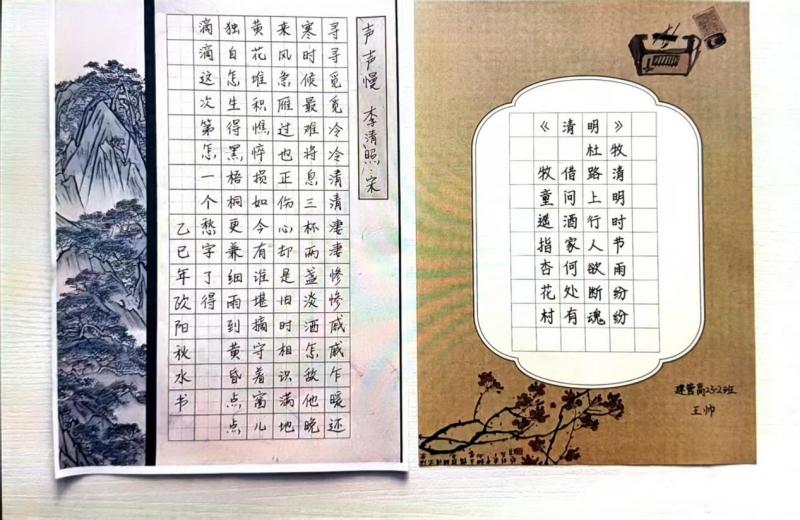 声声慢 李清照·宋
寻寻觅觅冷冷清清凄凄惨惨戚戚乍暖还
寒时候最难将息三杯两盏淡酒怎敌他晚
来风急雁过也正伤心却是旧时相识满地
黄花堆积憔悴损如今有谁堪摘守着窗儿
独自怎生得黑梧桐更兼细雨到黄昏点点
滴滴这次第怎一个愁字了得
乙巳年欧阳秋水书
《清明》
杜牧
清明时节雨纷纷
路上行人欲断魂
借问酒家何处有
牧童遥指杏花村
建营高25-2班
王帅